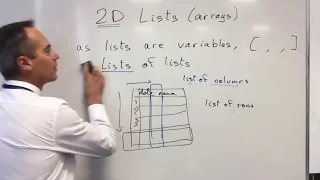 2D Lists (arrays)
as lists are variables, [ , , ]
Lists of lists
list of columns
name
list of rows
1
2
3